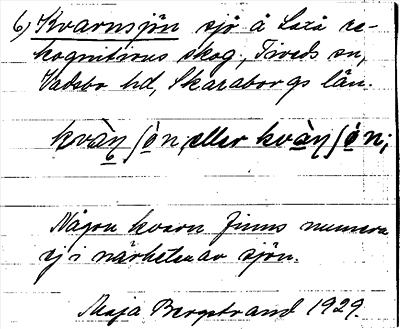 6) Kvarnsjön sjö å Laxå re-
kognitions skog, Tiveds sn,
Vadsbo hd, Skaraborgs län.
kvàṇʃò̤n; eller kvàṇʃó̤n;
Någon kvarn finns numera
ej i närheten av sjön.
Maja Bergstrand 1929.